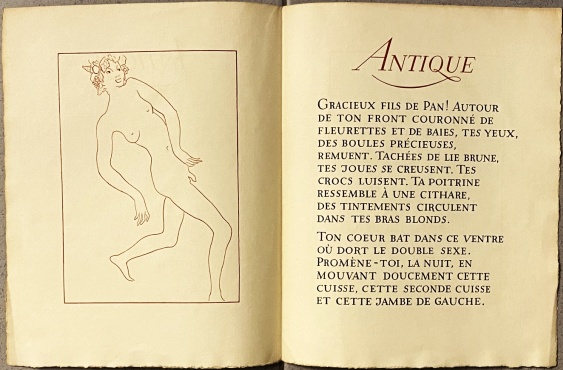 ANTIQUE
GRACIEUX FILS DE PAN! AUTOUR
DE TON FRONT COURONNÉ DE
FLEURETTES ET DE BAIES, TES YEUX,
DES BOULES PRÉCIEUSES,
REMUENT. TACHÉES DE LIE BRUNE,
TES JOUES SE CREUSENT. TES
CROCS LUISENT. TA POITRINE
RESSEMBLE À UNE CITHARE,
DES TINTEMENTS CIRCULENT
DANS TES BRAS BLONDS.
TON COEUR BAT DANS CE VENTRE
OÙ DORT LE DOUBLE SEXE.
PROMÈNE-TOI, LA NUIT, EN
MOUVANT DOUCEMENT CETTE
CUISSE, CETTE SECONDE CUISSE
ET CETTE JAMBE DE GAUCHE.